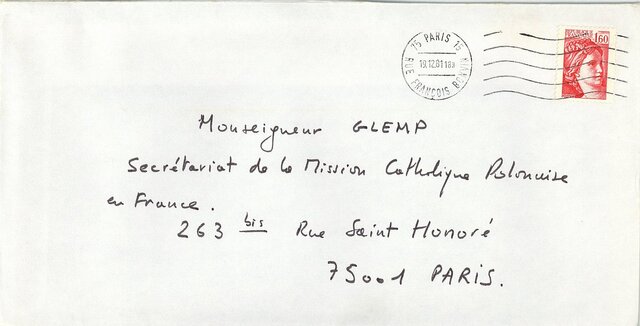 75 PARIS 15
RUE FRANÇOIS BONVIN
1,60
Monseigneur GLEMP
Secrétariat de la Mission Catholique Polonaise
en France.
263 bis Rue Saint Honoré
75001 PARIS.